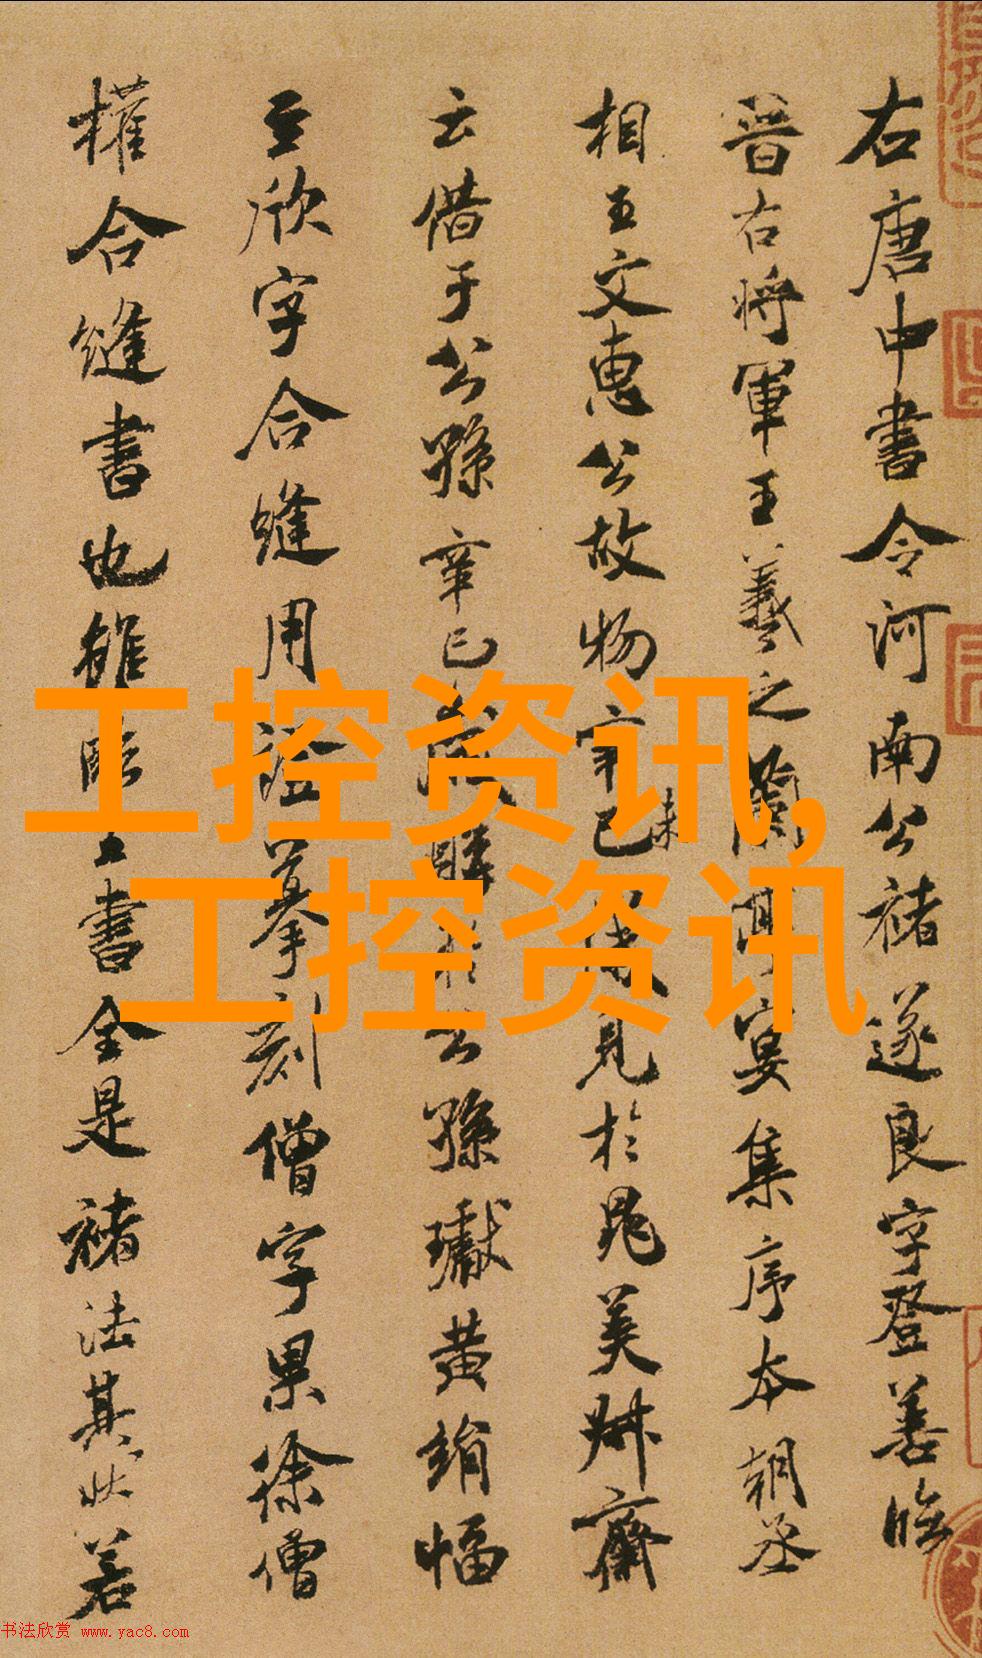 右唐中書令河南公褚遂良字登善臨
晉右將軍王羲之蘭亭宴集序本朝丞
相王文惠公故物辛巳歲見於晁美叔齋
云借于公孫辛巳歲購于公孫瓛黃絹幅
至欣字合縫用證摹刻僧字果徐僧
權合縫書也雖臨王書全是褚法其狀若
工控资讯,
工控资讯
书法欣赏 www.yac8.com